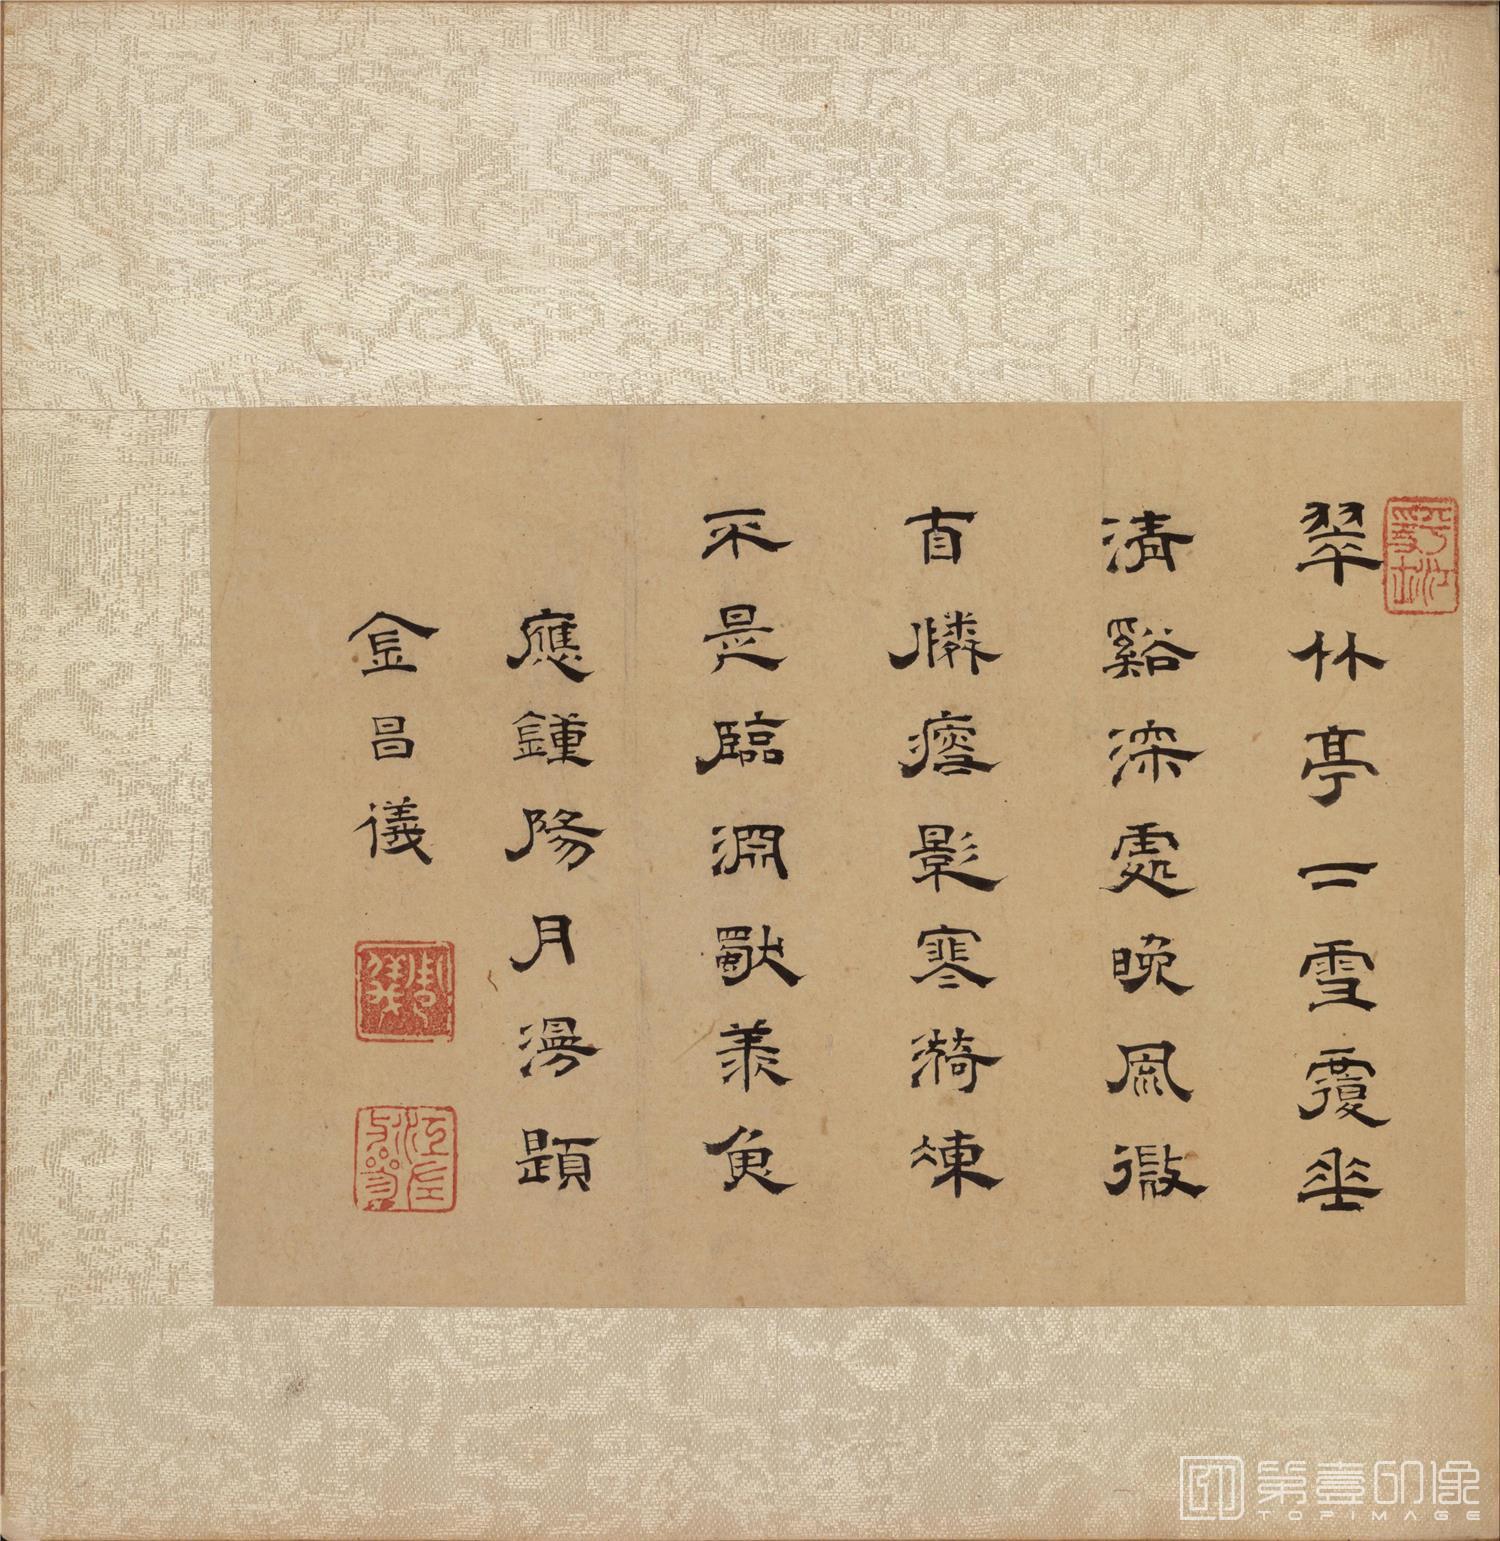 翠竹亭二雪覆華
清谿深處晚風微
自憐瘦影寒漪竦
不是臨淵獨羨魚
應鍾陽月漫題
金昌儀
第壹印像
TOPIMAGE